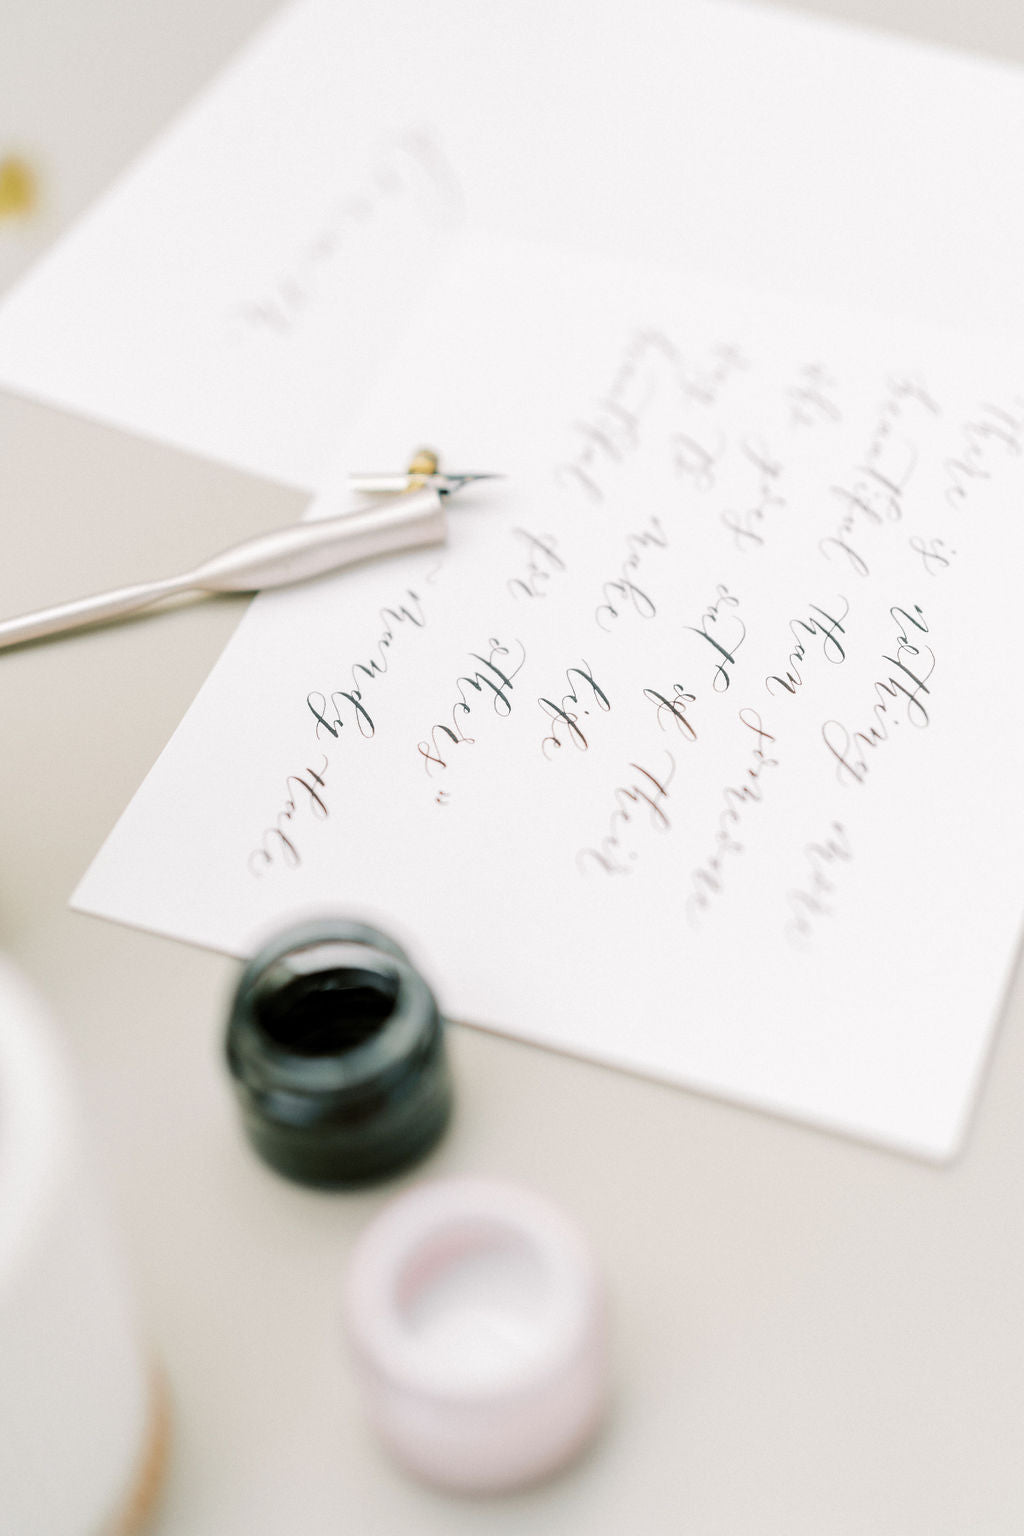 "There is nothing more
beautiful than someone
who goes out of their
way to make life
beautiful for others"
~ Mandy Hale